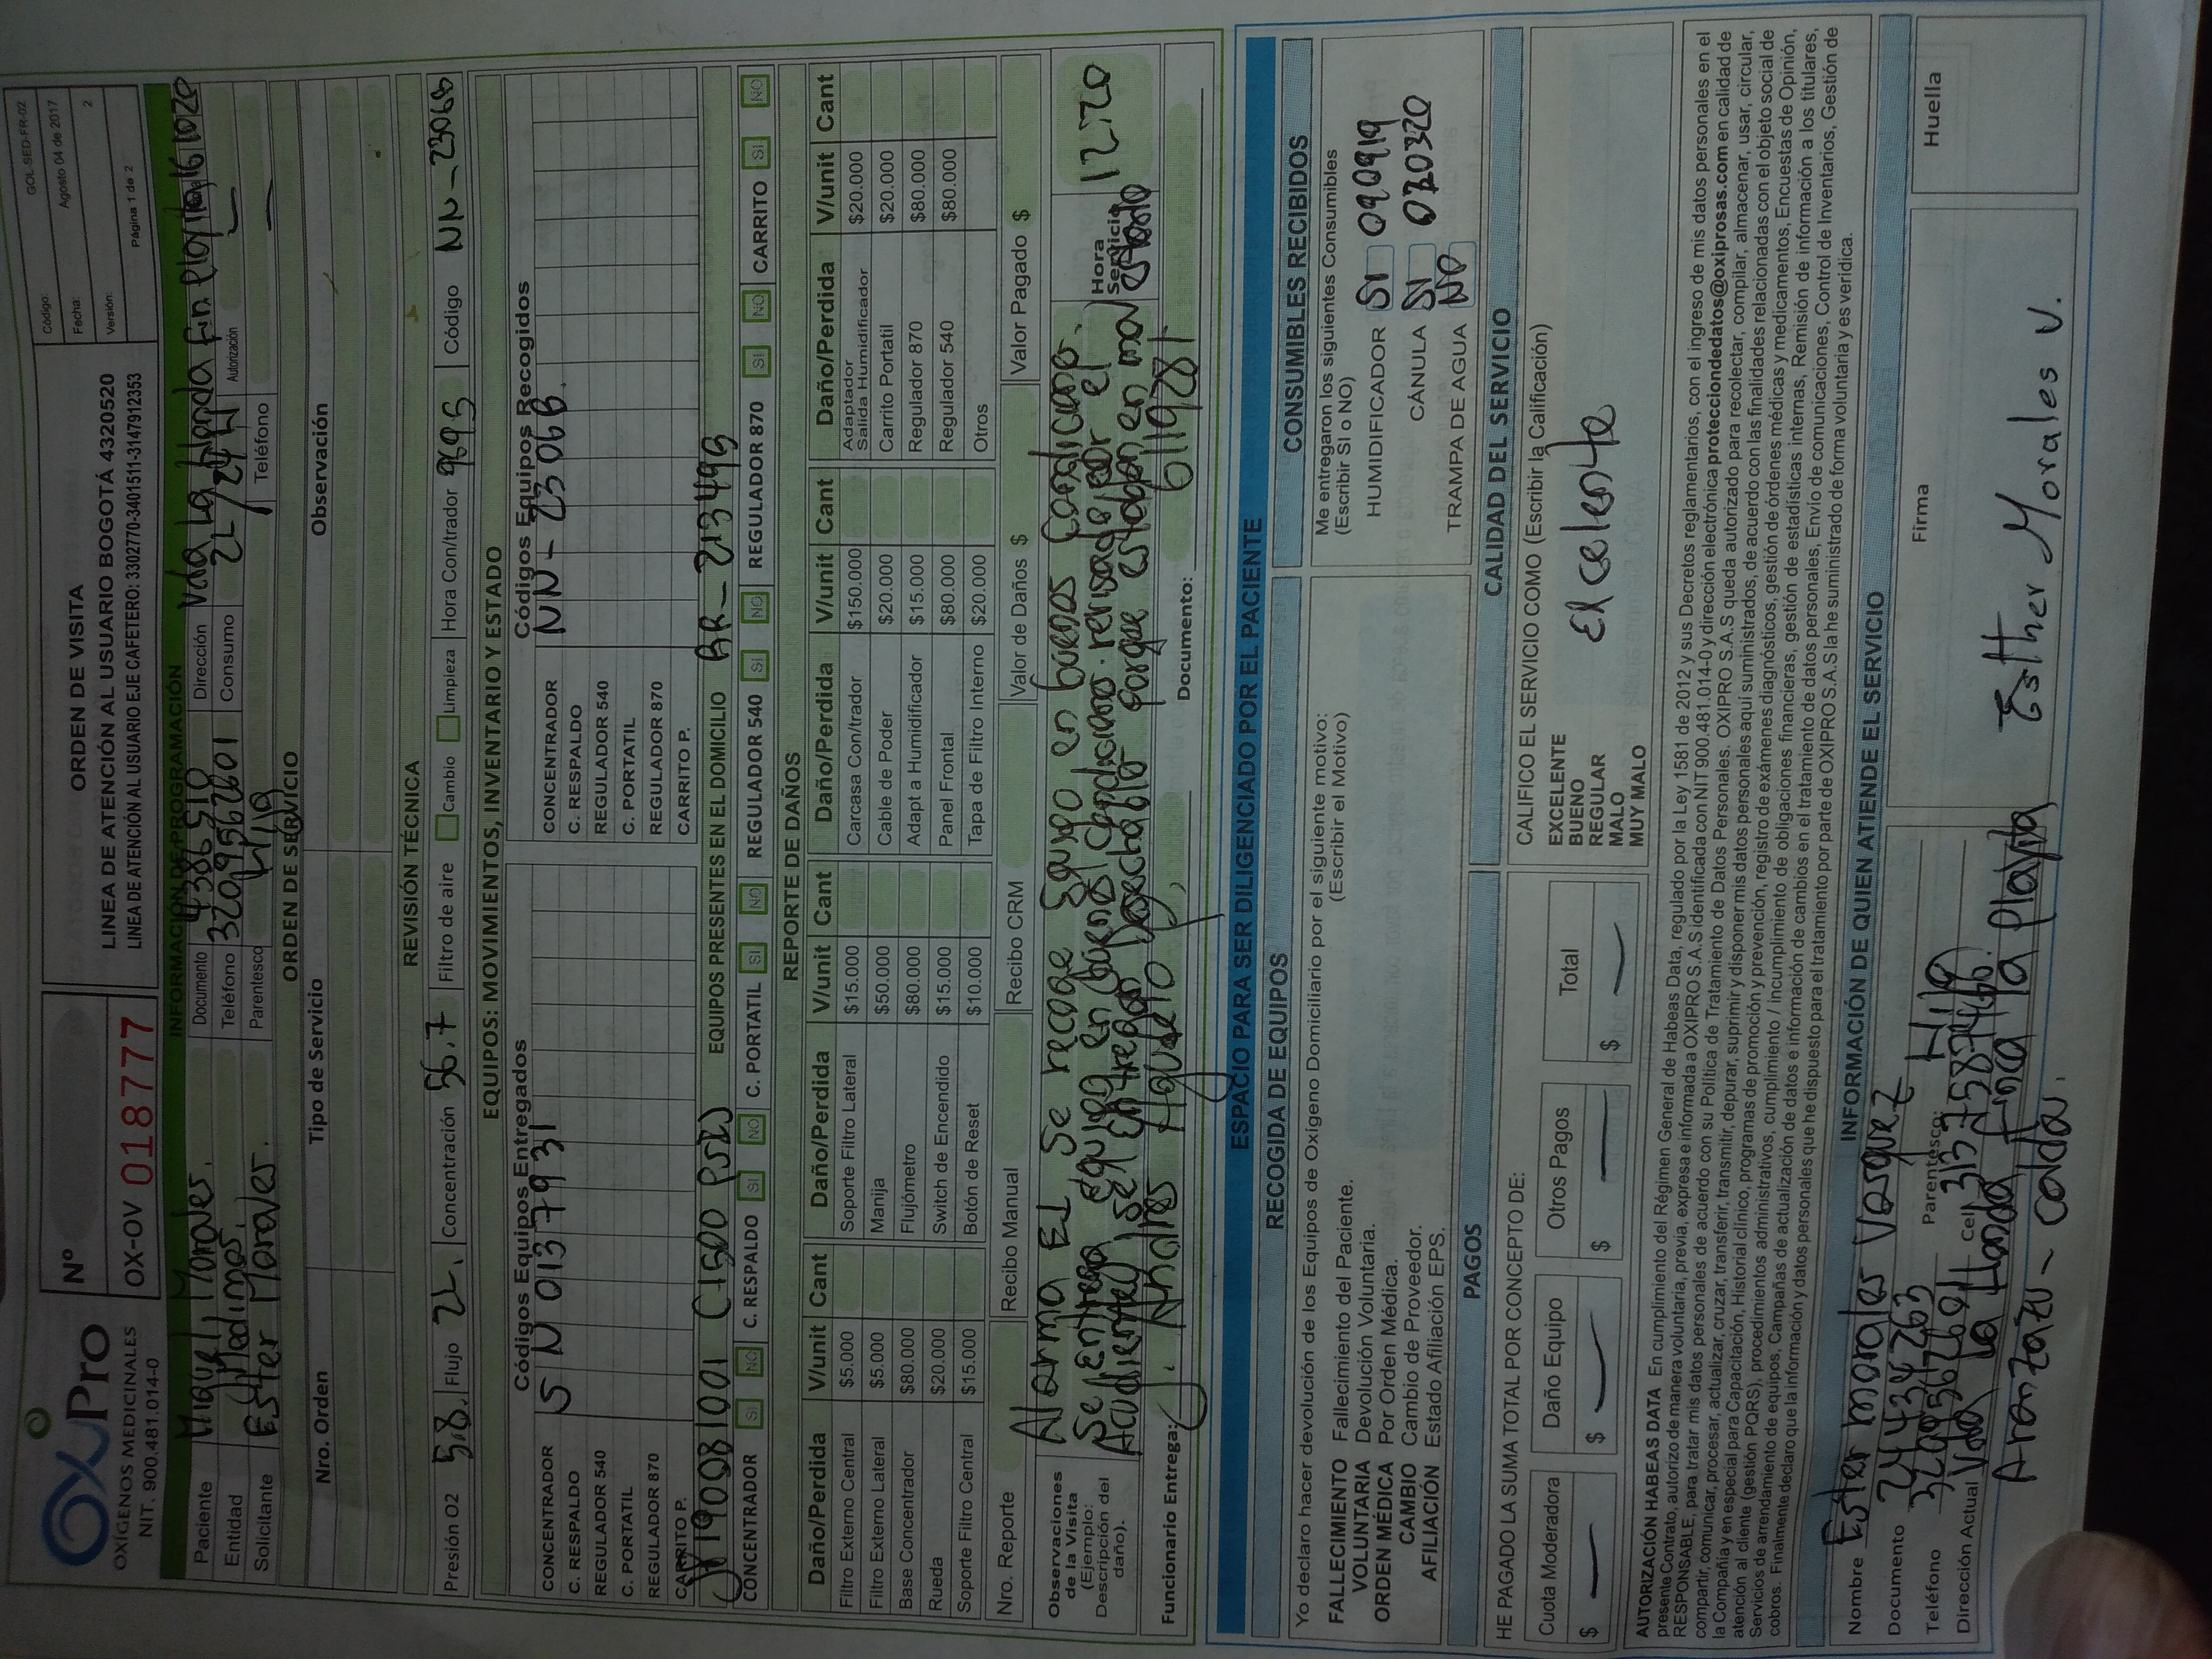 OxyPro
OXÍGENOS MEDICINALES
NIT. 900.481.014-0
Nº
OX-OV 018777
ORDEN DE VISITA
LINEA DE ATENCIÓN AL USUARIO BOGOTÁ 4320520
LINEA DE ATENCIÓN AL USUARIO EJE CAFETERO: 3302770-3401511-3147912353
Código: GOL-SED-FR-02
Fecha: Agosto 04 de 2017
Versión: 2
Página 1 de 2
INFORMACIÓN DE PROGRAMACIÓN
Paciente Miguel Morales. Documento 4386510 Dirección Vda la Honda Fin
Entidad Medimas. Teléfono 3209567601 Consumo 2L/24H Autorización
Solicitante Ester Morales. Parentesco Hija Teléfono —
ORDEN DE SERVICIO
Nro. Orden Tipo de Servicio Observación
REVISIÓN TÉCNICA
Presión O2 5.8. Flujo 2L. Concentración 56.7 Filtro de aire Cambio Limpieza Hora Con/trador 9695 Código NN-23068
EQUIPOS: MOVIMIENTOS, INVENTARIO Y ESTADO
Códigos Equipos Entregados Códigos Equipos Recogidos
CONCENTRADOR SN 01379731 CONCENTRADOR NN-23068.
C. RESPALDO C. RESPALDO
REGULADOR 540 REGULADOR 540
C. PORTATIL C. PORTATIL
REGULADOR 870 REGULADOR 870
CARRITO P. CARRITO P.
EQUIPOS PRESENTES EN EL DOMICILIO RR-213495
CONCENTRADOR SI NO C. RESPALDO SI NO C. PORTATIL SI NO REGULADOR 540 SI NO REGULADOR 870 SI NO CARRITO SI NO
REPORTE DE DAÑOS
Daño/Perdida V/unit Cant Daño/Perdida V/unit Cant Daño/Perdida V/unit Cant Daño/Perdida V/unit Cant
Filtro Externo Central $5.000 Soporte Filtro Lateral $15.000 Carcasa Con/trador $150.000 Adaptador Salida Humidificador $20.000
Filtro Externo Lateral $5.000 Manija $50.000 Cable de Poder $20.000 Carrito Portatil $20.000
Base Concentrador $80.000 Flujómetro $80.000 Adapt a Humidificador $15.000 Regulador 870 $80.000
Rueda $20.000 Switch de Encendido $15.000 Panel Frontal $80.000 Regulador 540 $80.000
Soporte Filtro Central $15.000 Botón de Reset $10.000 Tapa de Filtro Interno $20.000 Otros
Nro. Reporte Recibo Manual Recibo CRM Valor de Daños $ Valor Pagado $
Observaciones de la Visita (Ejemplo: Descripción del daño).
Alarma El se recoge Equipo en buenas Condiciones.
Se entrega equipo en buenas Condiciones revisado por el
Acudiente, se entregan porque estaban en mal estado
Hora Servicio 12:20
Funcionario Entrega: Andres Agudelo P, Documento: 6119281.
ESPACIO PARA SER DILIGENCIADO POR EL PACIENTE
RECOGIDA DE EQUIPOS
Yo declaro hacer devolución de los Equipos de Oxígeno Domiciliario por el siguiente motivo:
(Escribir el Motivo)
FALLECIMIENTO Fallecimiento del Paciente.
VOLUNTARIA Devolución Voluntaria.
ORDEN MÉDICA Por Orden Médica.
CAMBIO Cambio de Proveedor.
AFILIACIÓN Estado Afiliación EPS.
CONSUMIBLES RECIBIDOS
Me entregaron los siguientes Consumibles
(Escribir SI o NO)
HUMIDIFICADOR SI 090919
CÁNULA SI 020320
TRAMPA DE AGUA NO
PAGOS
HE PAGADO LA SUMA TOTAL POR CONCEPTO DE:
Cuota Moderadora Daño Equipo Otros Pagos Total
$ — $ — $ — $ —
CALIDAD DEL SERVICIO
CALIFICO EL SERVICIO COMO (Escribir la Calificación)
EXCELENTE
BUENO
REGULAR
MALO
MUY MALO
Excelente
AUTORIZACIÓN HABEAS DATA En cumplimiento del Régimen General de Habeas Data, regulado por la Ley 1581 de 2012 y sus Decretos reglamentarios, con el ingreso de mis datos personales en el
presente Contrato, autorizo de manera voluntaria, previa, expresa e informada a OXIPRO S.A.S identificada con NIT 900.481.014-0 y dirección electrónica protecciondedatos@oxiprosas.com en calidad de
RESPONSABLE, para tratar mis datos personales de acuerdo con su Política de Tratamiento de Datos Personales. OXIPRO S.A.S queda autorizado para recolectar, compilar, almacenar, usar, circular,
compartir, comunicar, procesar, actualizar, cruzar, transferir, transmitir, depurar, suprimir y disponer mis datos personales aquí suministrados, de acuerdo con las finalidades relacionadas con el objeto social de
la Compañía y en especial para Capacitación, Historial clínico, programas de promoción y prevención, registro de exámenes diagnósticos, gestión de órdenes médicas y medicamentos, Encuestas de Opinión,
atención al cliente (gestión PQRS), procedimientos administrativos, cumplimiento / incumplimiento de obligaciones financieras, gestión de estadísticas internas, Remisión de información a los titulares,
Servicios de arrendamiento de equipos, Campañas de actualización de datos e información de cambios en el tratamiento de datos personales, Envío de comunicaciones, Control de Inventarios, Gestión de
cobros. Finalmente declaro que la información y datos personales que he dispuesto para el tratamiento por parte de OXIPRO S.A.S la he suministrado de forma voluntaria y es verídica.
INFORMACIÓN DE QUIEN ATIENDE EL SERVICIO
Nombre Ester morales Vasquez
Documento 24434263 Parentesco: Hija
Teléfono 3209567601 Cel 3137587466.
Dirección Actual Vda la Honda Finca la Playita
Aranzazu - Caldas.
Firma Esther Morales V.
Huella